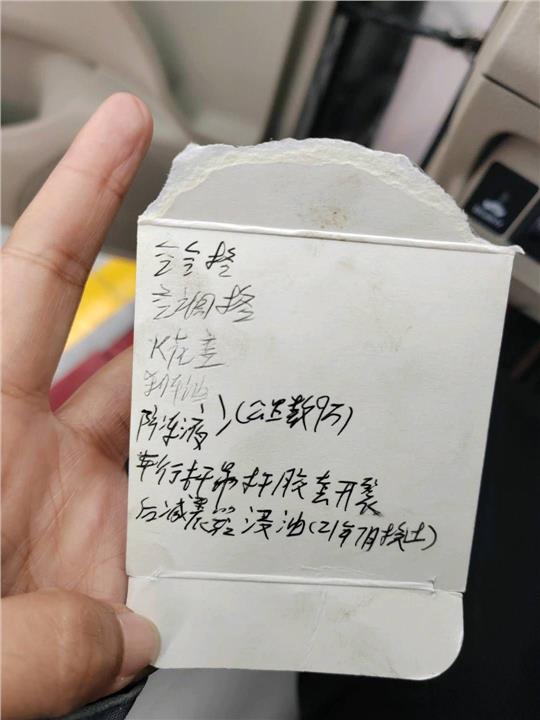 空气格
空调格
火花塞
刹车油
防冻液 } (公里数9万)
平行杆吊杆胶套开裂
后减震器浸油(21年7月换上)